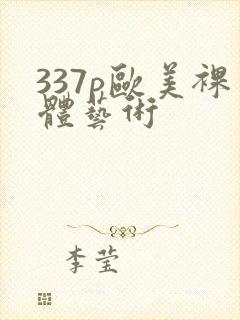 337p歐美裸
體藝術
李莹